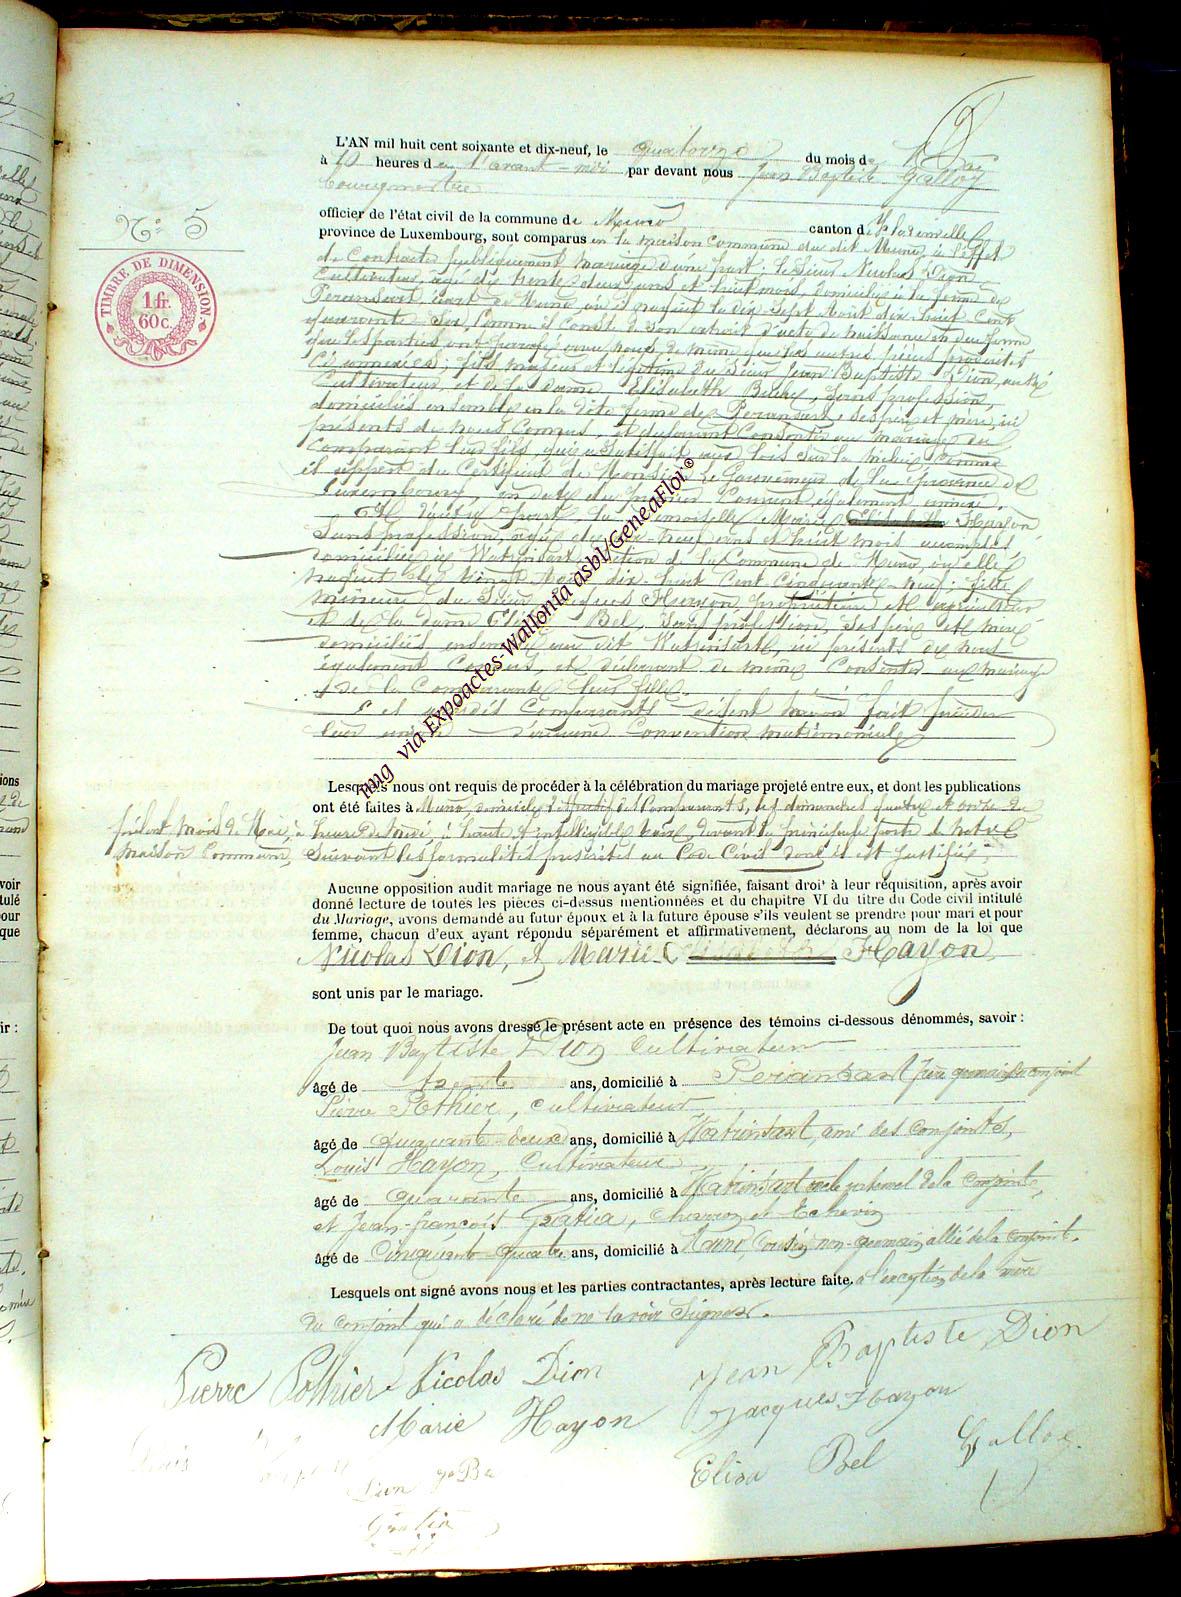 L'AN mil huit cent soixante et dix-neuf, le quatorze du mois de Mai
à 10 heures de l'avant-midi par devant nous Jean Baptiste Galloy
bourgmestre
officier de l'état civil de la commune de Muno canton de Florenville
province de Luxembourg, sont comparus en la maison commune du dit Muno, à l'effet
de contracter publiquement mariage d'une part: le Sieur Nicolas Dion
Cultivateur, âgé de trente deux ans et huit mois, domicilié à la ferme de
Peransart, écart de Muno, où il naquit le dix Sept Août dix-huit Cent
quarante Six, comme il conste de son extrait d'acte de naissance en due forme
que les parties ont par devant nous de même que les autres pièces produites
et annexées; fils majeur et légitime du Sieur Jean Baptiste Dion,
Cultivateur et de la dame Elisabeth sans profession,
domiciliés ensemble en la dite ferme de Peransart, ses père et mère, ici
présents de nous Connus, et déclarant Consentir au mariage du
Comparant leur fils, qui a Satisfait aux lois sur la milice comme
il appert du Certificat de Monsieur le Gouverneur de la province de
Luxembourg, en date du premier Courant également annexé.
Et d'autre part, la Demoiselle Marie Elisabeth Hayon
Sans profession, âgée de dix-neuf ans et huit mois accomplis,
domiciliée à Watrinsart, section de la Commune de Muno, où elle
naquit le vingt Août dix-huit Cent Cinquante neuf; fille
mineure du Sieur Jacques Hayon, propriétaire et agriculteur
et de la dame Bel, Sans profession, Ses père et mère
domiciliés ensemble au dit Watrinsart, ici présents de nous
également Connus, et déclarant de même Consentir au mariage
de la Comparante leur fille.
Les susdits Comparants disent n'avoir fait précéder
leur union d'aucune Convention matrimoniale
Lesquels nous ont requis de procéder à la célébration du mariage projeté entre eux, et dont les publications
ont été faites à Muno, domicile des Comparants, les dimanches quatre et onze du
présent mois de Mai, à l'heure de midi, à haute et intelligible voix, devant la principale porte de notre
maison Commune, Suivant les formalités prescrites au Code Civil dont il est justifié.
Aucune opposition audit mariage ne nous ayant été signifiée, faisant droit à leur réquisition, après avoir
donné lecture de toutes les pièces ci-dessus mentionnées et du chapitre VI du titre du Code civil intitulé
du Mariage, avons demandé au futur époux et à la future épouse s'ils veulent se prendre pour mari et pour
femme, chacun d'eux ayant répondu séparément et affirmativement, déclarons au nom de la loi que
Nicolas Dion, et Marie Elisabeth Hayon,
sont unis par le mariage.
De tout quoi nous avons dressé le présent acte en présence des témoins ci-dessous dénommés, savoir :
Jean Baptiste Dion Cultivateur
âgé de trente ans, domicilié à Peransart frère germain du conjoint
Pierre Pothier, cultivateur
âgé de quarante-deux ans, domicilié à Watrinsart, ami des conjoints,
Louis Hayon, Cultivateur
âgé de quarante ans, domicilié à Watrinsart oncle paternel de la conjointe,
et Jean-François Gratia, charron et Echevin
âgé de Cinquante-quatre ans, domicilié à Muno Cousin non-germain allié de la conjointe.
Lesquels ont signé avons nous et les parties contractantes, après lecture faite, à l'exception de la mère
du conjoint qui a déclaré de ne savoir signer.
Pierre Pothier Nicolas Dion Jean Baptiste Dion
Marie Hayon Jacques Hayon
Louis
Dion Elisa Bel Galloy
Gratia
N° 5
TIMBRE DE DIMENSION.
1 fr.
60 c.
img via Expoactes-Wallonia asbl/GeneaFlor©